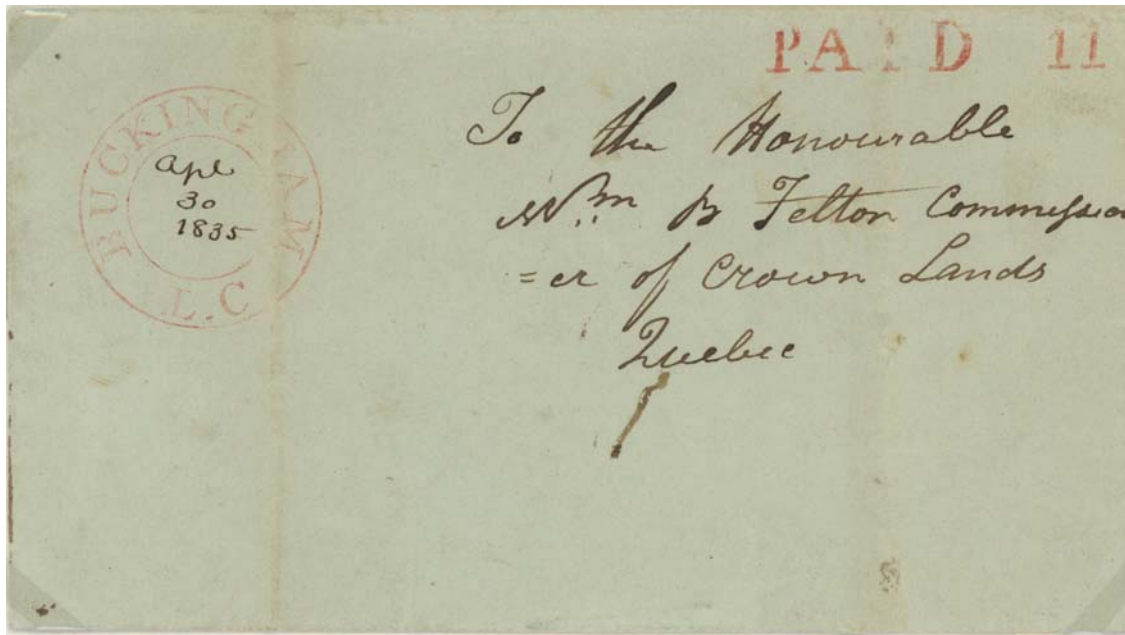 PAID 11
BUCKINGHAM
L.C
Apl
30
1835
To the Honourable
Wm. B Felton Commission
=er of Crown Lands
Quebec